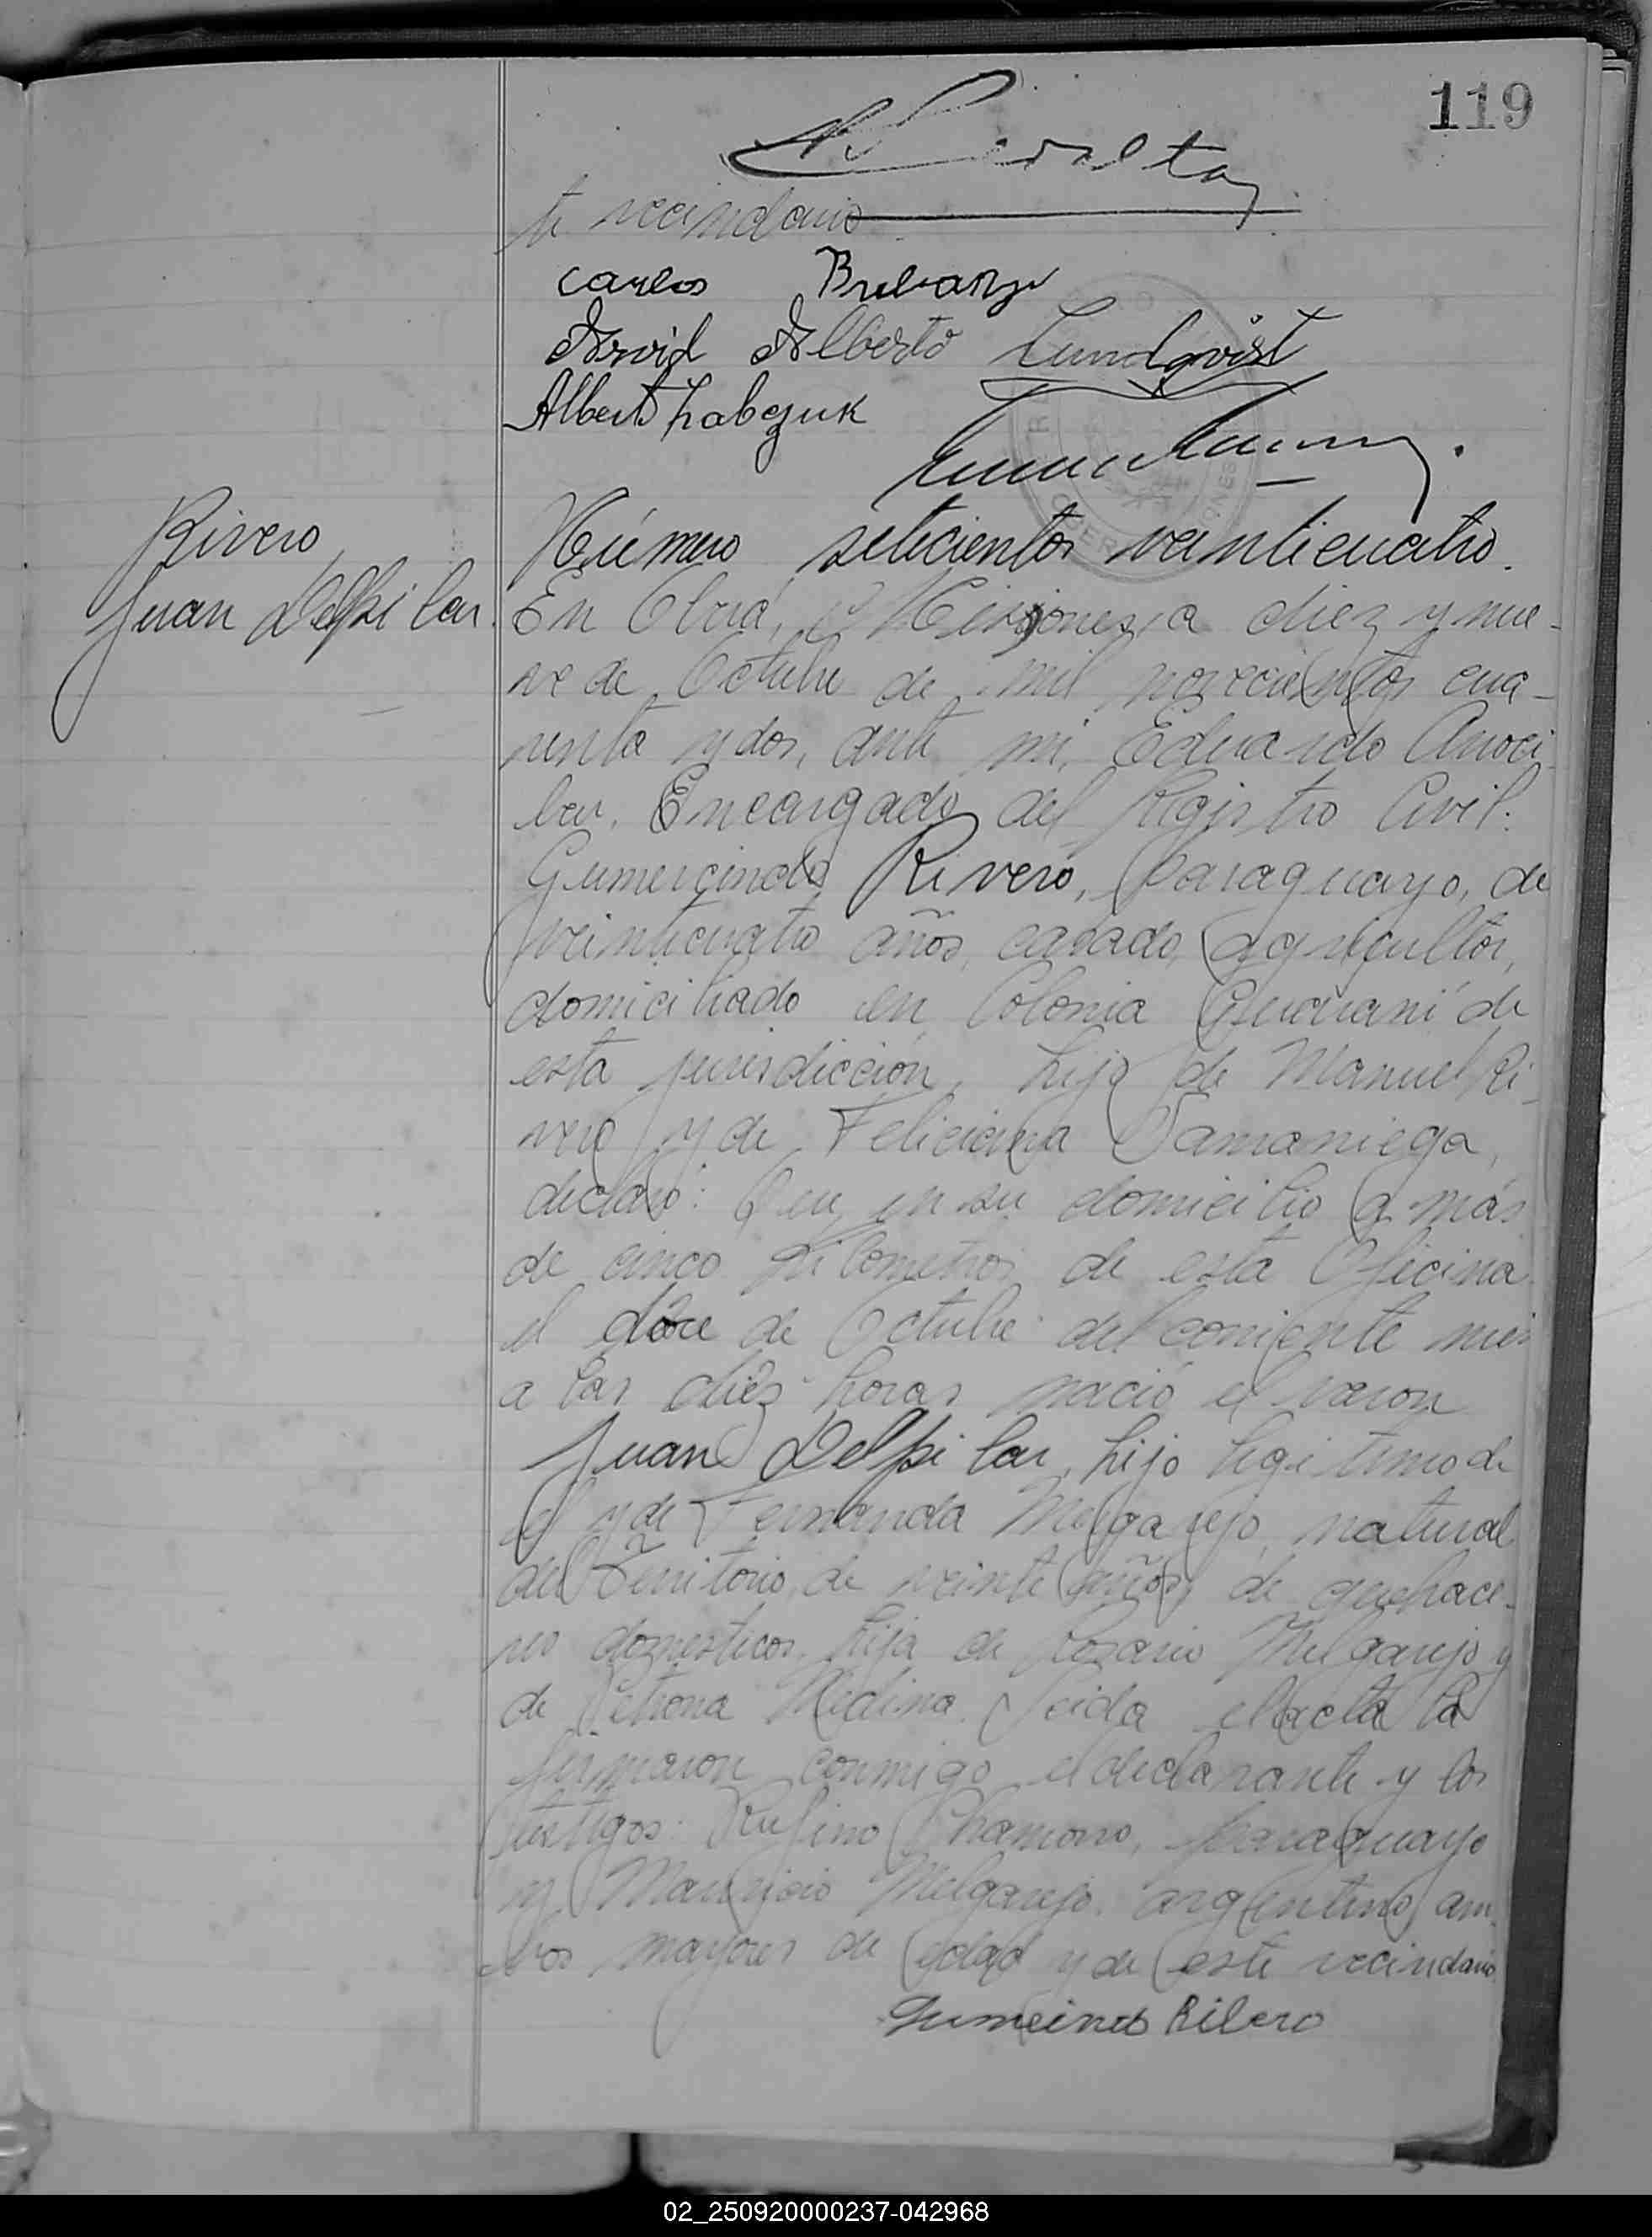 119
te vecindario
Carlos
Arvid Alberto Lundqvist
Alberto
Rivero
Juan Delpilar.
Número setecientos veinticuatro.
En Oberá, Misiones, a diez y nue-
ve de Octubre de mil novecientos cua-
renta y dos, ante mi, Eduardo Anoci-
bar, Encargado del Registro Civil:
Gumercindo Rivero, Paraguayo, de
veinticuatro años, casado, agricultor,
domiciliado en Colonia Guaraní de
esta jurisdicción, hijo de Manuel Ri-
vero y de Feliciana Samaniega,
declaró: Que en su domicilio a más
de cinco kilometros de esta Oficina
el doce de Octubre del corriente mes
a las diez horas nació el varon
Juan Delpilar, hijo legitimo de
el y de Fernanda Melgarejo, natural
del Territorio, de veinte años, de quehace-
res domesticos, hija de Rosario Melgarejo y
de Petrona Medina. Leida el acta la
firmaron conmigo el declarante y los
testigos: Rufino Chamorro, paraguayo
y Mauricio Melgarejo, argentino, am-
bos mayores de edad y de este vecindario
Gumecindo Ribero
02_250920000237-042968